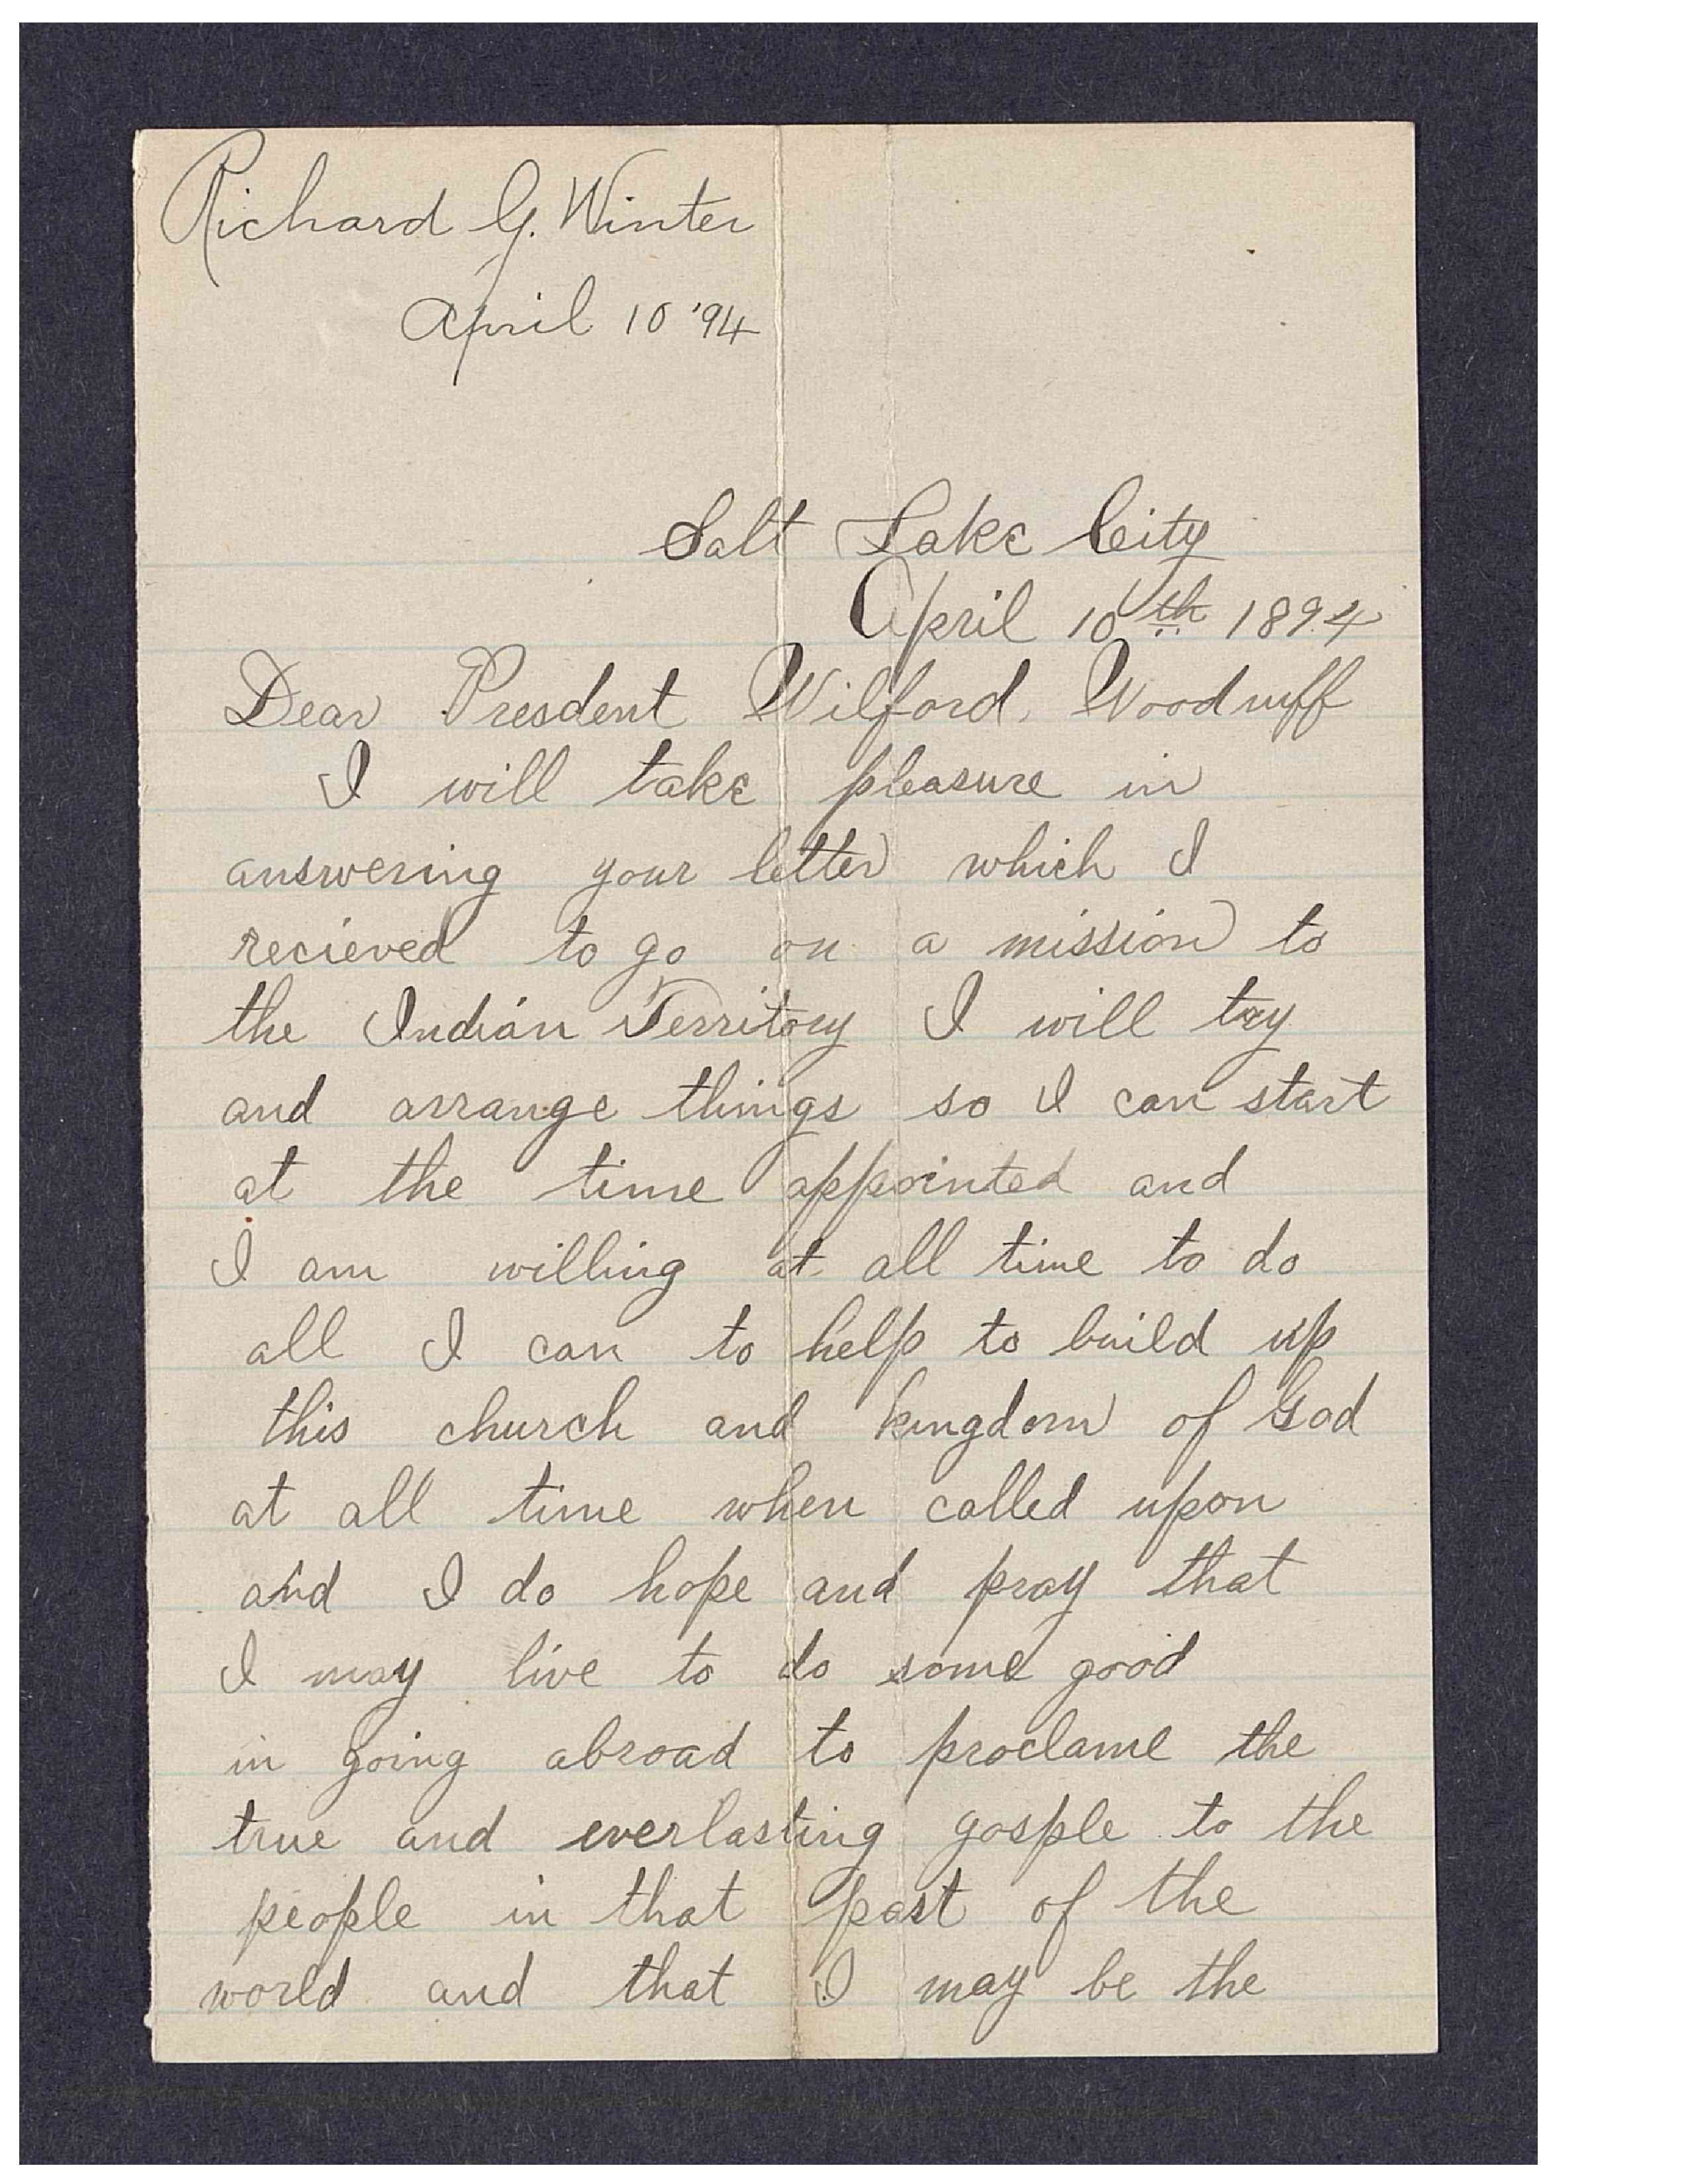 Richard G. Winter
April 10 '94
Salt Lake City
April 10th 1894
Dear Presdent Wilford. Woodruff
I will take pleasure in
answering your letter which I
recieved to go on a mission to
the Indian Territory I will try
and arrange things so I can start
at the time appointed and
I am willing at all time to do
all I can to help to build up
this church and kingdom of God
at all time when called upon
and I do hope and pray that
I may live to do some good
in going abroad to proclame the
true and everlasting gosple to the
people in that part of the
world and that I may be the